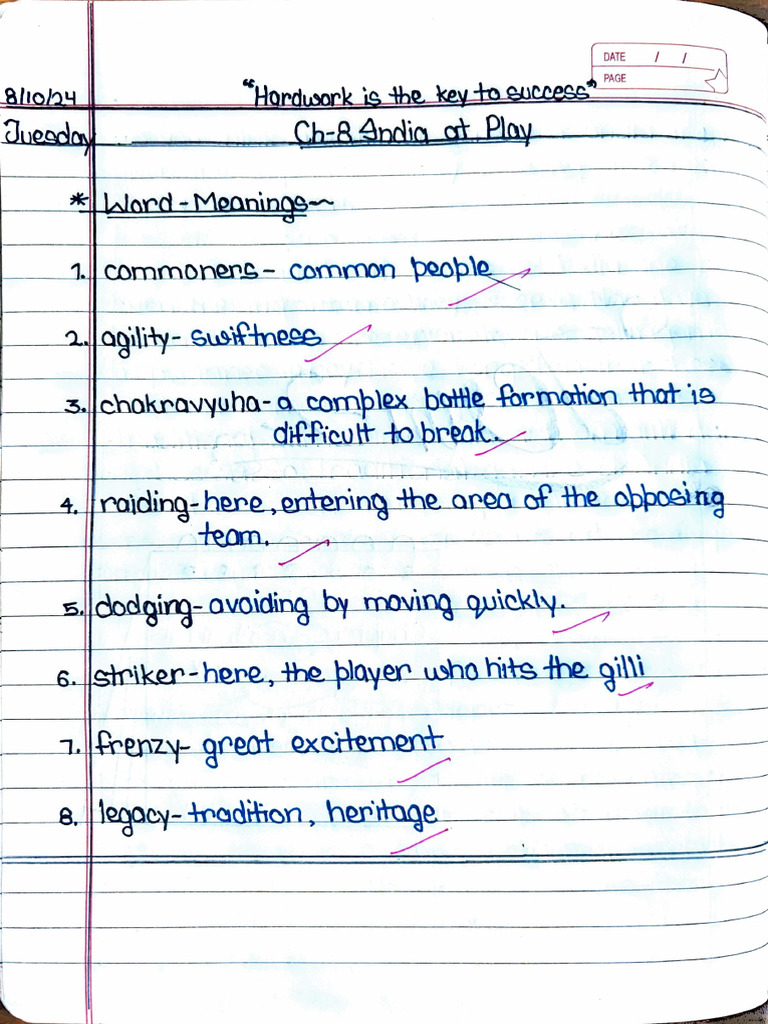 DATE / /
PAGE
8/10/24 "Hardwork is the key to success"
Tuesday Ch-8 India at Play
* Word-Meanings~
1. commoners- common people
2. agility- swiftness
3. chakravyuha- a complex battle formation that is
difficult to break.
4. raiding-here, entering the area of the opposing
team.
5. dodging- avoiding by moving quickly.
6. striker-here, the player who hits the gilli
7. frenzy- great excitement
8. legacy- tradition, heritage